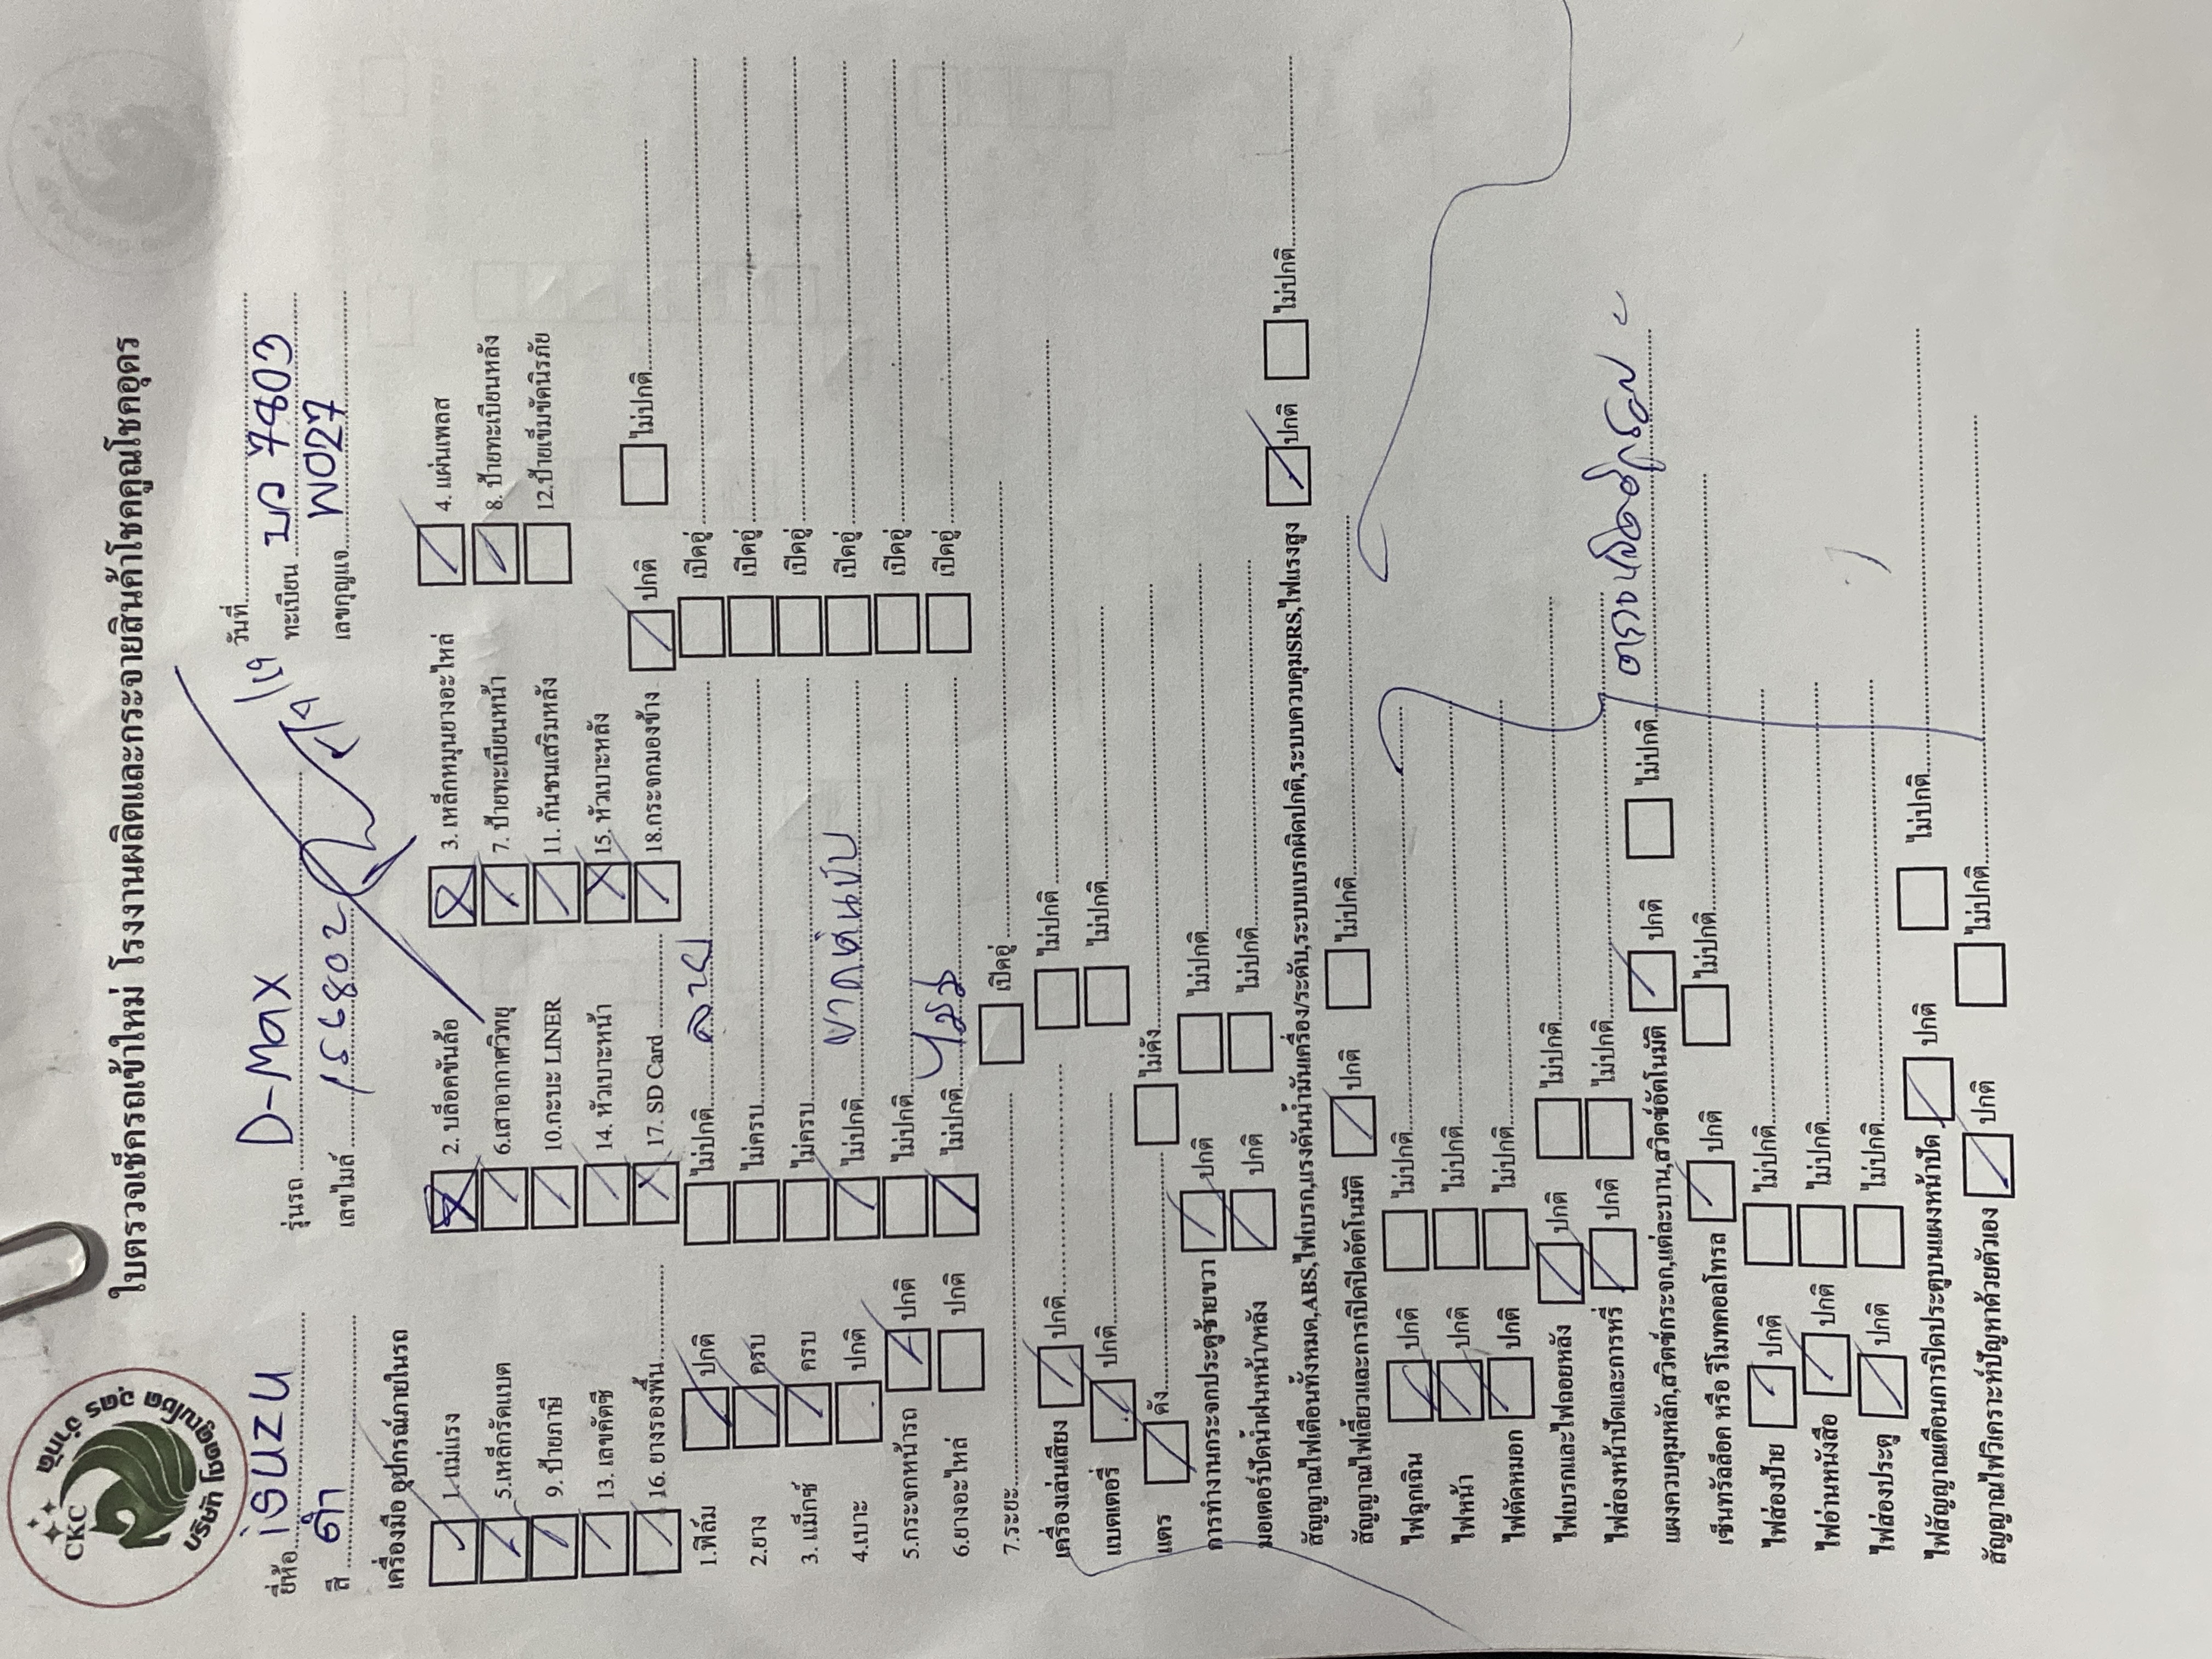 CKC
บริษัท โชคคูณโชค อุดร จำกัด
ใบตรวจเช็ครถเข้าใหม่ โรงงานผลิตและกระจายสินค้าโชคคูณโชคอุดร
ยี่ห้อ isuzu รุ่นรถ D-Max วันที่
สี ดำ เลขไมล์ 156802 ทะเบียน บว 7803
เลขกุญแจ W027
เครื่องมือ อุปกรณ์ภายในรถ
1. แม่แรง 2. บล็อคขันล้อ 3. เหล็กหมุนยางอะไหล่ 4. แผ่นเพลส
5.เหล็กรัดแบต 6.เสาอากาศวิทยุ 7. ป้ายทะเบียนหน้า 8. ป้ายทะเบียนหลัง
9. ป้ายภาษี 10.กะบะ LINER 11. กันชนเสริมหลัง 12.ป้ายเข็มขัดนิรภัย
13. เลขคัตซี 14. หัวเบาะหน้า 15. หัวเบาะหลัง
16. ยางรองพื้น 17. SD Card 18.กระจกมองข้าง ปกติ ไม่ปกติ
1.ฟิล์ม ปกติ ไม่ปกติ เปิดอู่
2.ยาง ครบ ไม่ครบ เปิดอู่
3. แม็กซ์ ครบ ไม่ครบ เปิดอู่
4.เบาะ ปกติ ไม่ปกติ ขาดด้านขับ เปิดอู่
5.กระจกหน้ารถ ปกติ ไม่ปกติ เปิดอู่
6.ยางอะไหล่ ปกติ ไม่ปกติ ไม่มี เปิดอู่
7.ระยะ: เปิดอู่
เครื่องเล่นเสียง ปกติ ไม่ปกติ
แบตเตอรี่ ปกติ ไม่ปกติ
แตร ดัง ไม่ดัง
การทำงานกระจกประตูซ้ายขวา ปกติ ไม่ปกติ
มอเตอร์ปัดน้ำฝนหน้า/หลัง ปกติ ไม่ปกติ
สัญญาณไฟเตือนทั้งหมด,ABS,ไฟเบรก,แรงดันน้ำมันเครื่อง/ระดับ,ระบบเบรกผิดปกติ,ระบบควบคุมSRS,ไฟแรงสูง ปกติ ไม่ปกติ
สัญญาณไฟเลี้ยวและการเปิดปิดอัตโนมัติ ปกติ ไม่ปกติ
ไฟฉุกเฉิน ปกติ ไม่ปกติ
ไฟหน้า ปกติ ไม่ปกติ
ไฟตัดหมอก ปกติ ไม่ปกติ
ไฟเบรกและไฟถอยหลัง ปกติ ไม่ปกติ
ไฟส่องหน้าปัดและการหรี่ ปกติ ไม่ปกติ
แผงควบคุมหลัก,สวิตช์กระจก,แต่ละบาน,สวิตช์อัตโนมัติ ปกติ ไม่ปกติ
เซ็นทรัลล็อค หรือ รีโมทคอลโทรล ปกติ ไม่ปกติ
ไฟส่องป้าย ปกติ ไม่ปกติ
ไฟอ่านหนังสือ ปกติ ไม่ปกติ
ไฟส่องประตู ปกติ ไม่ปกติ
ไฟสัญญาณเตือนการปิดประตูบนแผงหน้าปัด ปกติ ไม่ปกติ
สัญญาณไฟวิเคราะห์ปัญหาด้วยตัวเอง ปกติ ไม่ปกติ